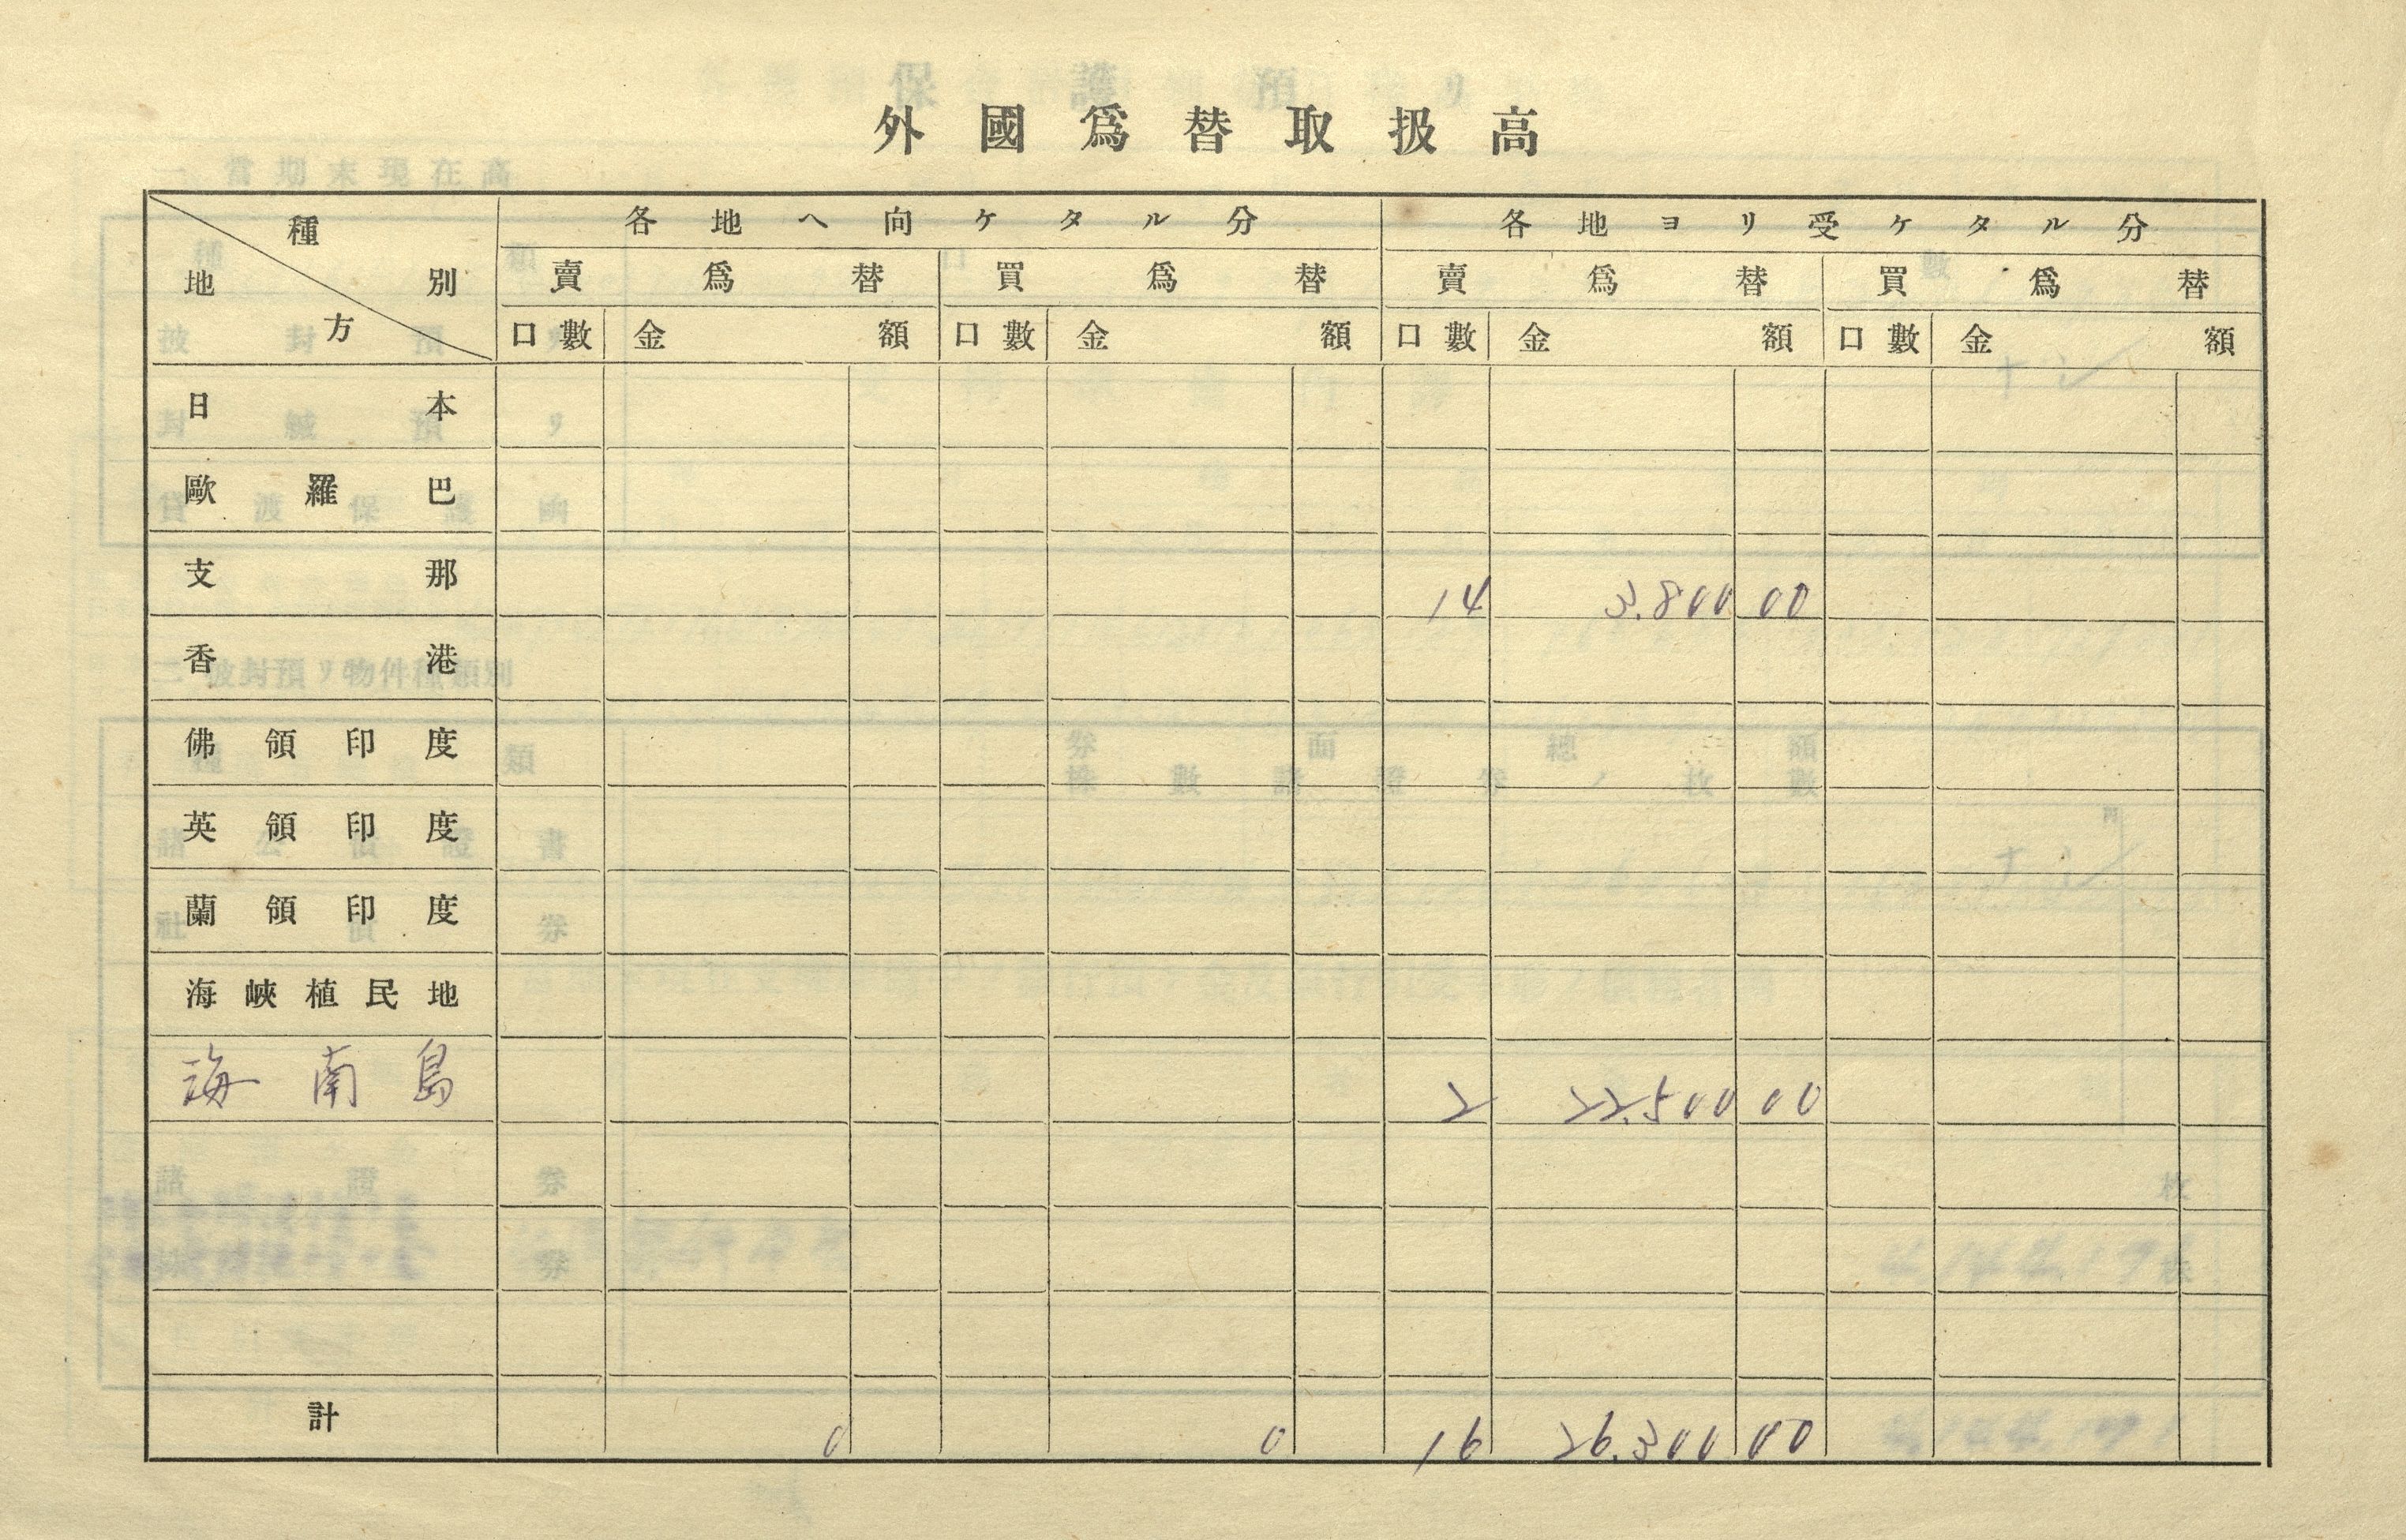 外國爲替取扱高
種別 地方 各地ヘ向ケタル分 各地ヨリ受ケタル分
賣爲替 買爲替 賣爲替 買爲替
口數 金額 口數 金額 口數 金額 口數 金額
日本
歐羅巴
支那 14 3.800 00
香港
佛領印度
英領印度
蘭領印度
海峽植民地
海南島 2 22.500 00
計 0 0 16 26.300 00